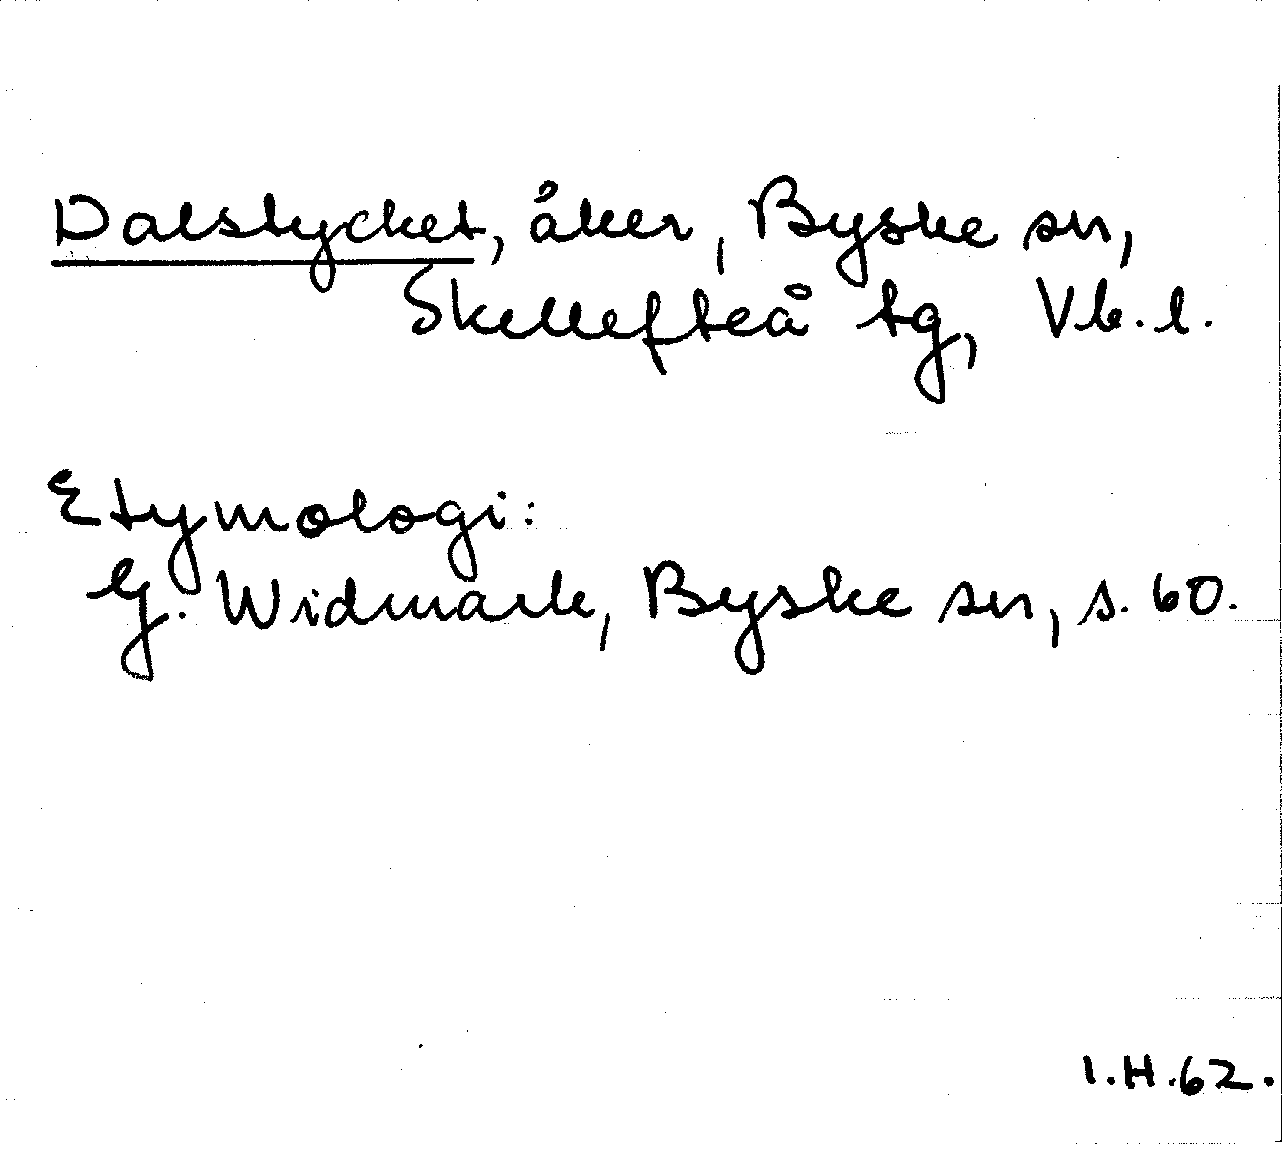 Dalstycket, åker, Byske sn,
Skellefteå tg, Vb. l.
Etymologi:
G. Widmark, Byske sn, s. 60.
I.H.62.